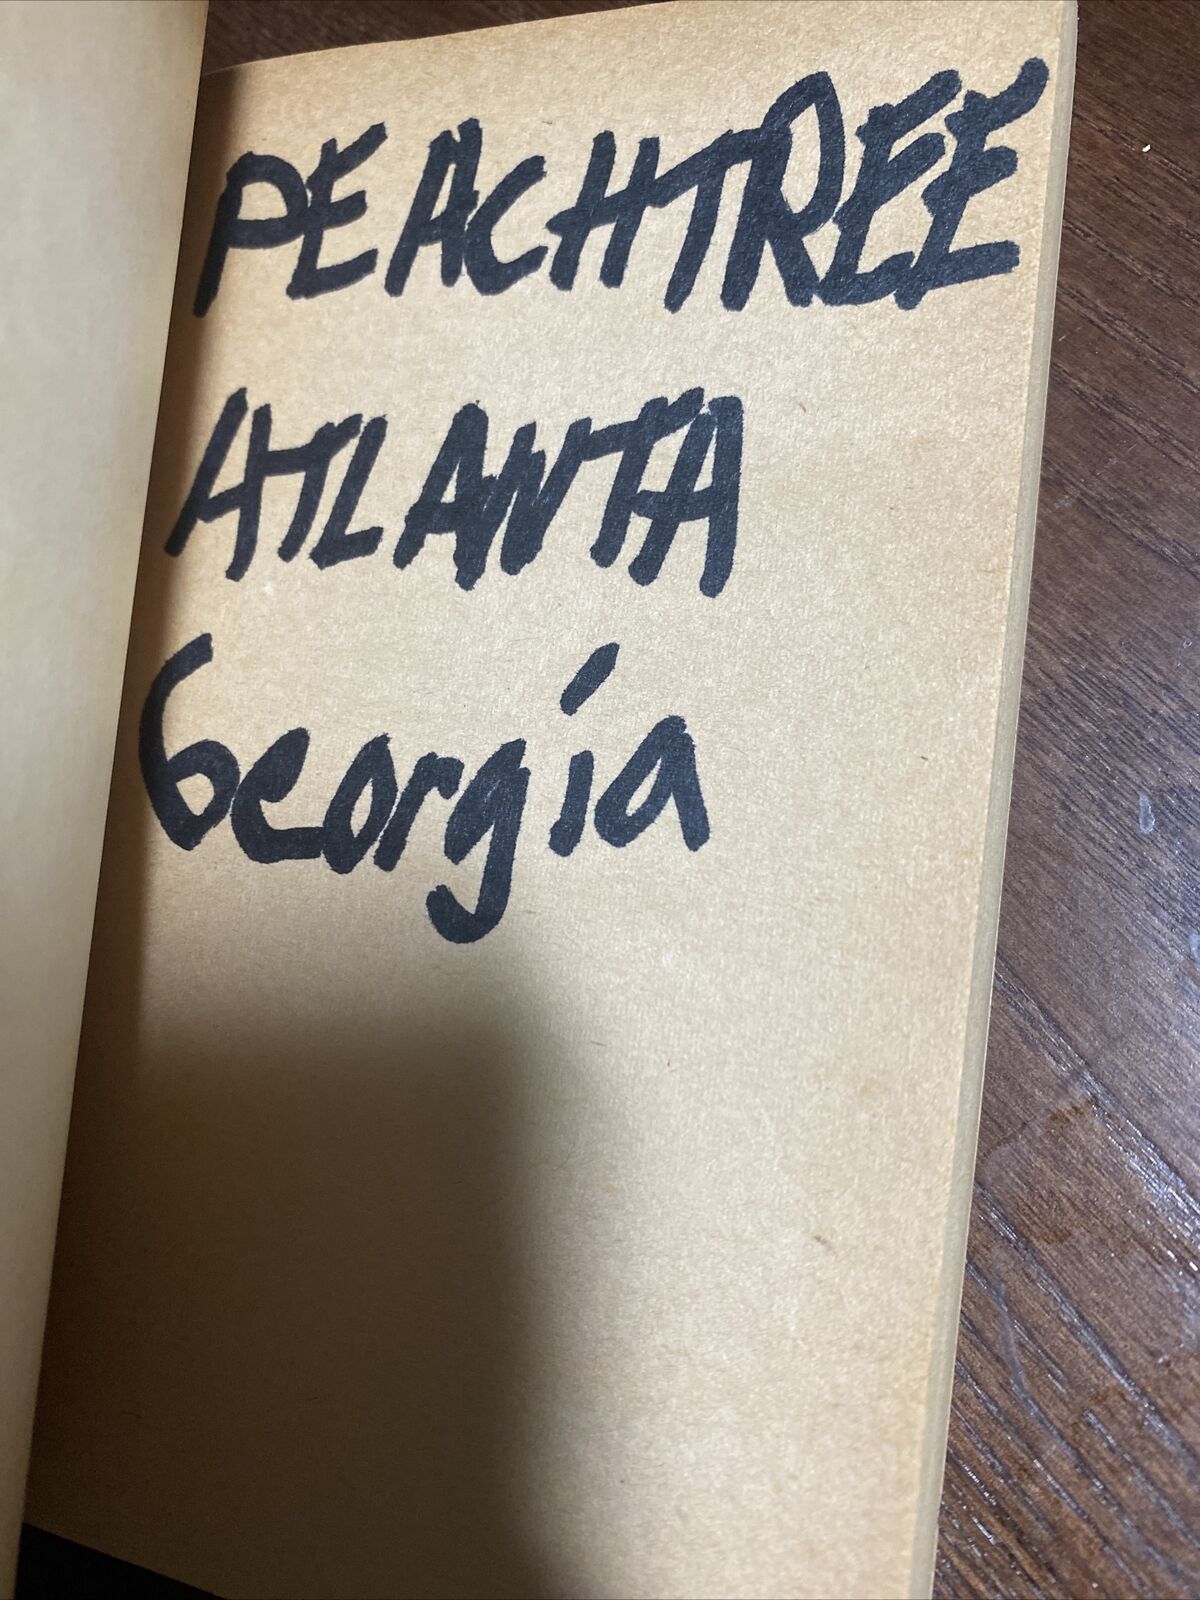 PEACHTREE
ATLANTA
Georgia